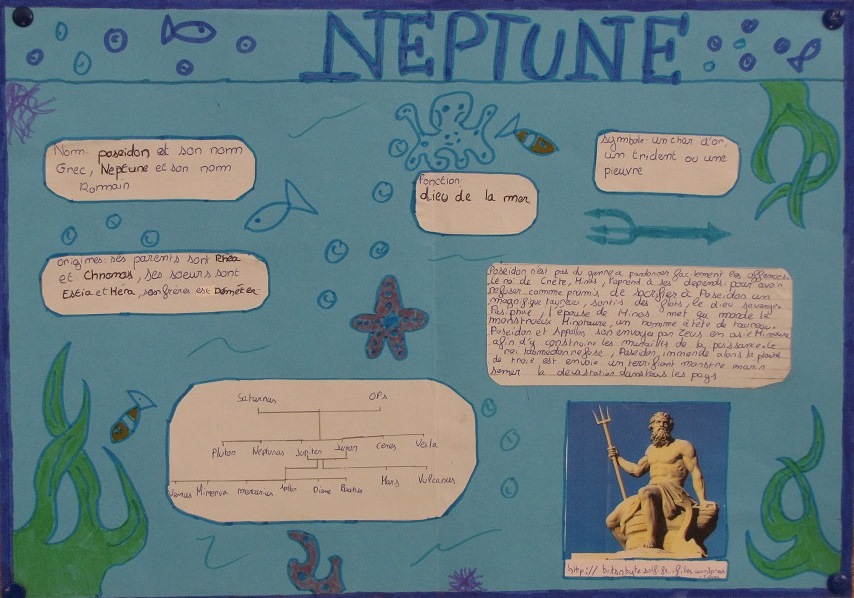 NEPTUNE
Nom: poseidon et son nom
Grec, Neptune et son nom
Romain
Fonction:
dieu de la mer
symbole: un char d'or,
un trident ou une
pieuvre
origines: ses parents sont Rhéa
et Chronos, ses soeurs sont
Estia et Héra, son frères est Déméter.
Poseidon n'est pas du genre a pardonner facilement les offences.
Le roi de Crète, Minos, l'aprend à ses depends: pour avoir
refuser comme promis de sacrifier à Poseidon un
magnifique taureau, sortis des flots, le dieu se venge.
Pasiphaé, l'épouse de Minos met au monde le
monstrueux Minotaure, un homme à tête de taureau.
Poseidon et Appollon son envoyé par Zeus en asie Mineure
afin d'y construire les murailles de la puissance. Le
roi laomedon refuse, Poseidon immonde alors la plaine
de troie est envoie un terrifiant monstre marin
semer la dévastation dans tous les pays
Saturnus OPs
Pluton Neptunus Jupiter Junon Ceres Vesta
Venus Minerva mercurius Diane Bacchus Mars Vulcanus